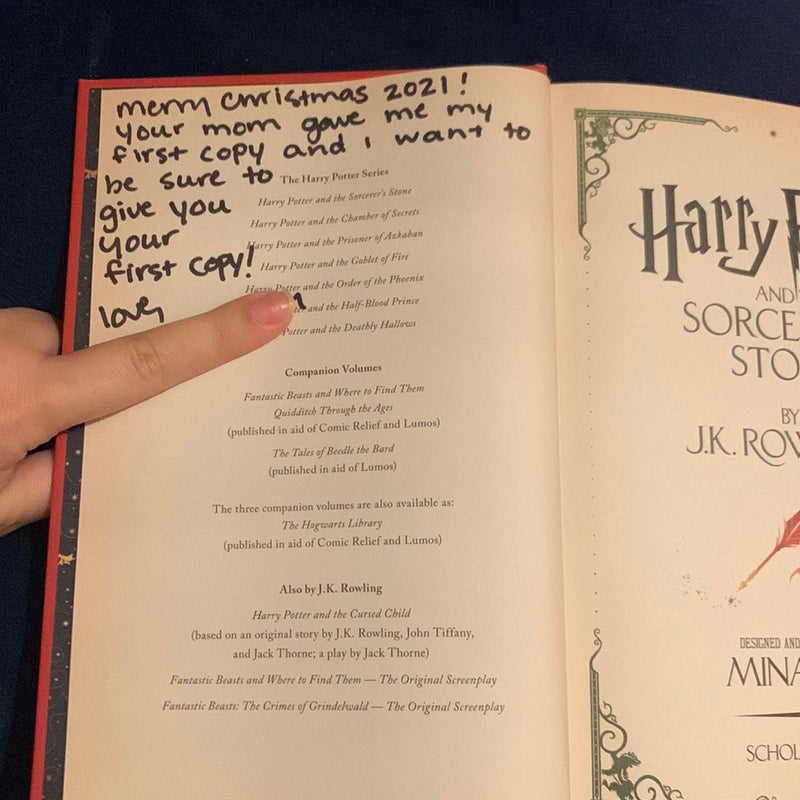 merry christmas 2021!
your mom gave me my
first copy and i want to
be sure to
give you
your
first copy!
love
The Harry Potter Series
Harry Potter and the Sorcerer's Stone
Harry Potter and the Chamber of Secrets
Harry Potter and the Prisoner of Azkaban
Harry Potter and the Goblet of Fire
Harry Potter and the Order of the Phoenix
and the Half-Blood Prince
Potter and the Deathly Hallows
Companion Volumes
Fantastic Beasts and Where to Find Them
Quidditch Through the Ages
(published in aid of Comic Relief and Lumos)
The Tales of Beedle the Bard
(published in aid of Lumos)
The three companion volumes are also available as:
The Hogwarts Library
(published in aid of Comic Relief and Lumos)
Also by J.K. Rowling
Harry Potter and the Cursed Child
(based on an original story by J.K. Rowling, John Tiffany,
and Jack Thorne; a play by Jack Thorne)
Fantastic Beasts and Where to Find Them — The Original Screenplay
Fantastic Beasts: The Crimes of Grindelwald — The Original Screenplay
Harry P
AND
SORCE
STO
BY
J.K. ROW
DESIGNED AND
MINA
SCHOL